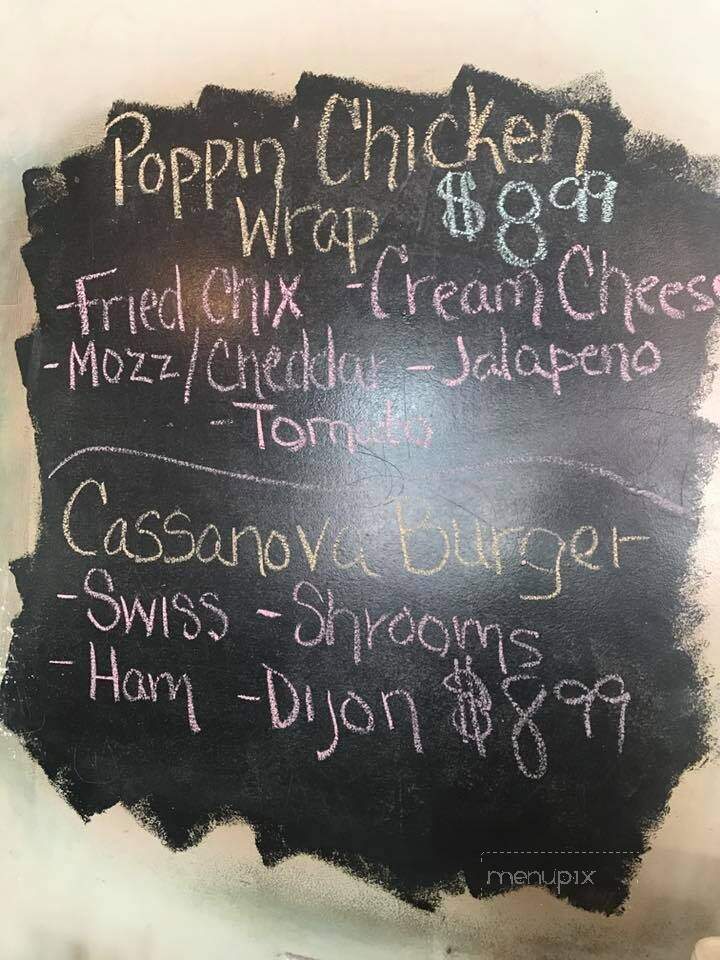 Poppin' Chicken
Wrap $8.99
-Fried Chix -Cream Chees
-Mozz/Cheddar -Jalapeno
-Tomato
Cassanova Burger
-Swiss -Shrooms
-Ham -Dijon $8.99
menupix